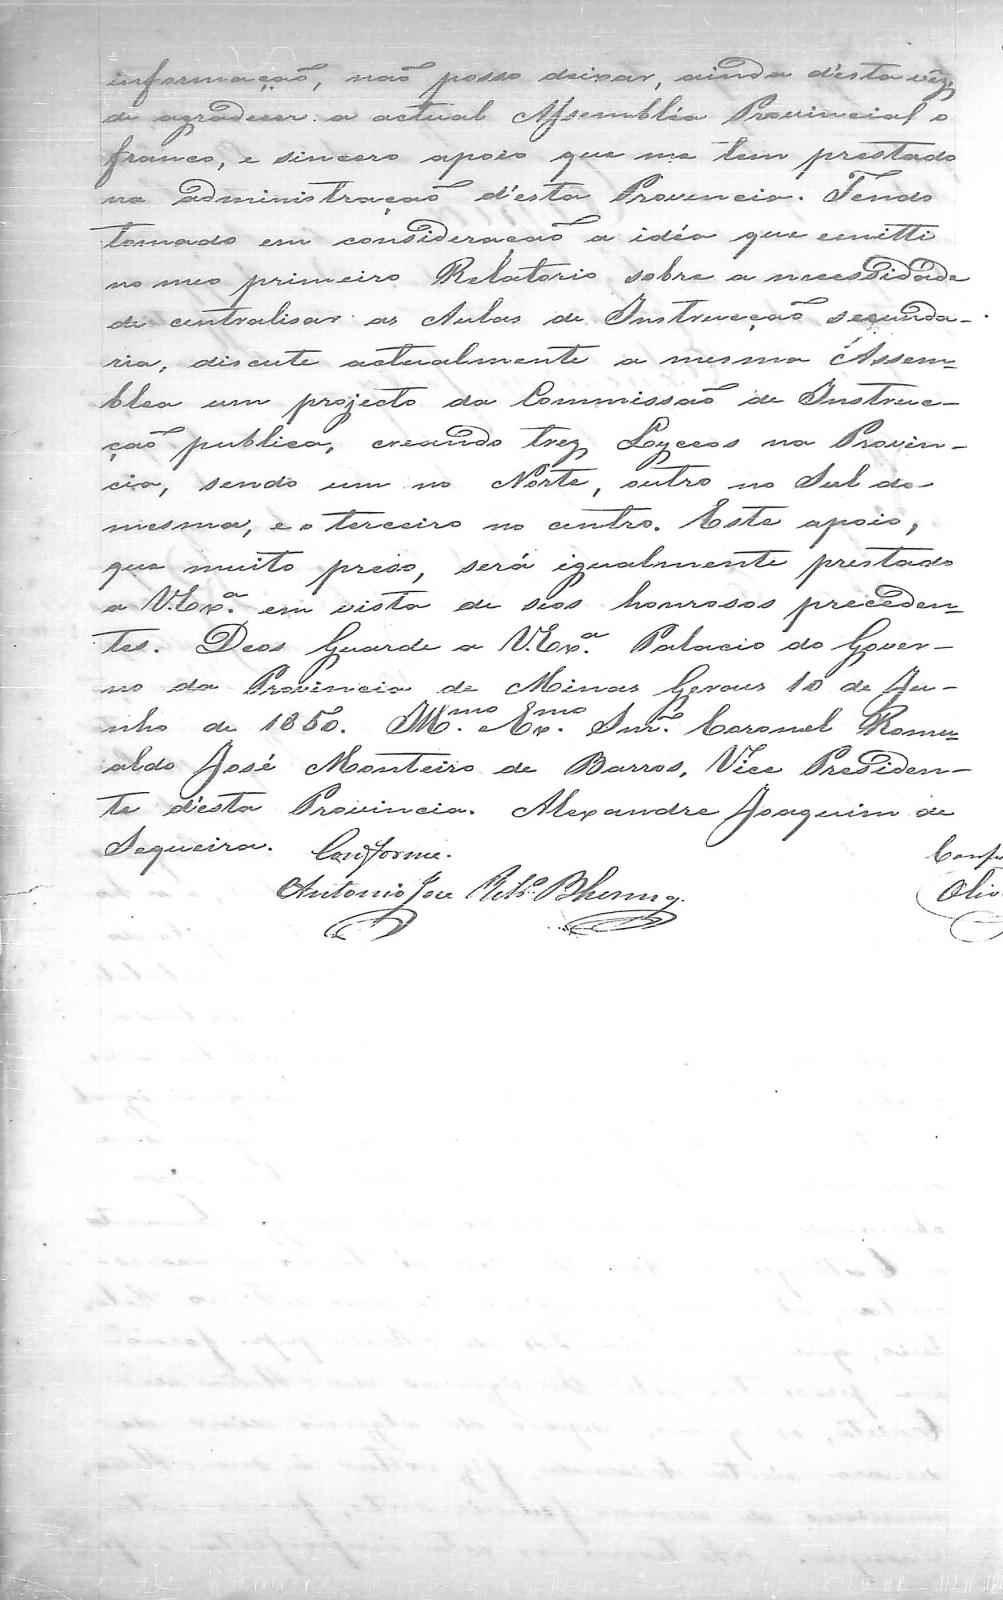 informação, não posso deixar, ainda d'esta vez,
de agradecer a actual Assembléa Provincial o
franco, e sincero apoio que me tem prestado
na administração d'esta Provincia. Tendo
tomado em consideração a idéa que emitti
no meo primeiro Relatorio sobre a necessidade
de centralisar as Aulas de Instrucção secunda-
ria, discute actualmente a mesma Assem=
blea um projecto da Commissão de Instruc-
ção publica, creando trez Lyceos na Provin-
cia, sendo um no Norte, outro no Sul da
mesma, e o terceiro no centro. Este apoio,
que muito preso, será igualmente prestado
a V. Exª. em vista de seos honrosos preceden=
tes. Deos Guarde a V. Exª. Palacio do Gover-
no da Provincia de Minas Geraes 10 de Ju-
nho de 1850. Illmo. e Exmo. Snr. Coronel Romu=
aldo José Monteiro de Barros, Vice Presiden-
te d'esta Provincia. Alexandre Joaquim de
Sequeira. Conforme.
Antonio Jose